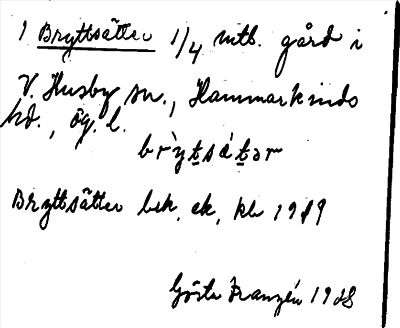 1 Bryttsätter 1/4 mtl. gård i
V. Husby sn., Hammarkinds
hd., Ög. l.
brỳtsátər
Bryttsätter bek, ek, kb 1919
Gösta Franzén 1928